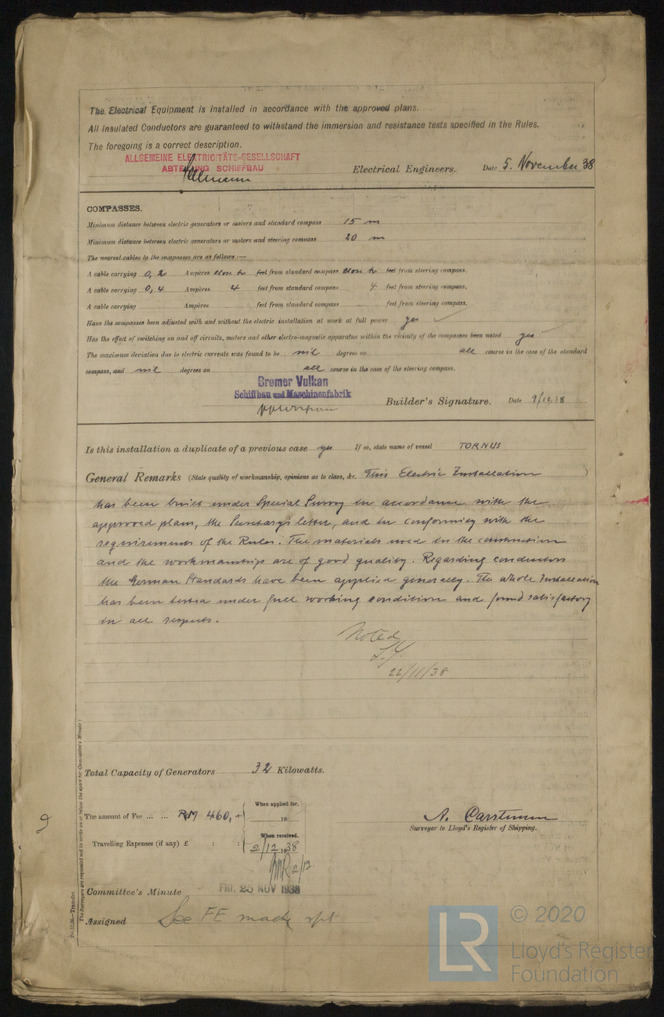 The Electrical Equipment is installed in accordance with the approved plans.
All Insulated Conductors are guaranteed to withstand the immersion and resistance tests specified in the Rules.
The foregoing is a correct description.
ALLGEMEINE ELECTRICITÄTS-GESELLSCHAFT
ABTEILUNG SCHIFFBAU
Electrical Engineers. Date 5. November 38
COMPASSES.
Minimum distance between electric generators or motors and standard compass 15 m
Minimum distance between electric generators or motors and steering compass 20 m
The nearest cables to the compasses are as follows:—
A cable carrying 0,2 Amperes close to feet from standard compass close to feet from steering compass.
A cable carrying 0,4 Amperes 4 feet from standard compass 4 feet from steering compass.
A cable carrying Amperes feet from standard compass feet from steering compass.
Have the compasses been adjusted with and without the electric installation at work at full power yes
Has the effect of switching on and off circuits, motors and other electro-magnetic apparatus within the vicinity of the compasses been noted yes
The maximum deviation due to electric currents was found to be nil degrees on all course in the case of the standard
compass, and nil degrees on all course in the case of the steering compass.
Bremer Vulkan
Schiffbau und Maschinenfabrik
Builder's Signature. Date
Is this installation a duplicate of a previous case yes If so, state name of vessel TORNUS
General Remarks (State quality of workmanship, opinions as to class, &c. This Electric Installation
has been built under Special Survey in accordance with the
approved plans, the Secretary's letter, and in conformity with the
requirements of the Rules. The materials used in the construction
and the workmanship are of good quality. Regarding conductors
the German Standards have been applied generally. The whole Installation
has been tested under full working condition and found satisfactory
in all respects.
Noted
22/11/38
Total Capacity of Generators 32 Kilowatts.
The amount of Fee ... ... RM 460,- When applied for, 19
Travelling Expenses (if any) £ : : When received, 2/12 1938
2/12
A. Carstensen
Surveyor to Lloyd's Register of Shipping.
Committee's Minute FRI. 25 NOV 1938
Assigned See FE mach rpt
© 2020
LR
Lloyd's Register
Foundation